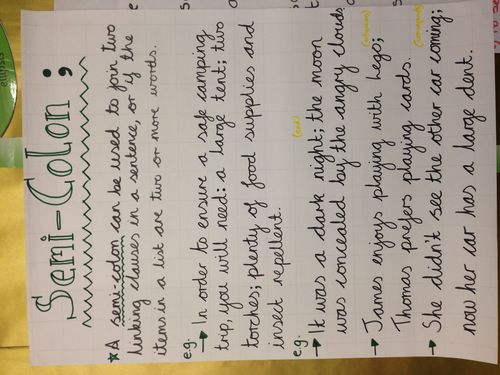 Semi-Colon ;
★ A semi-colon can be used to join two
linking clauses in a sentence, or if the
items in a list are two or more words.
e.g.
→ In order to ensure a safe camping
trip, you will need: a large tent; two
torches; plenty of food supplies and
insect repellent.
e.g.
(and)
→ It was a dark night; the moon
was concealed by the angry clouds
(whereas)
→ James enjoys playing with Lego;
Thomas prefers playing cards.
→ She didn't see the other car coming;
now her car has a large dent.